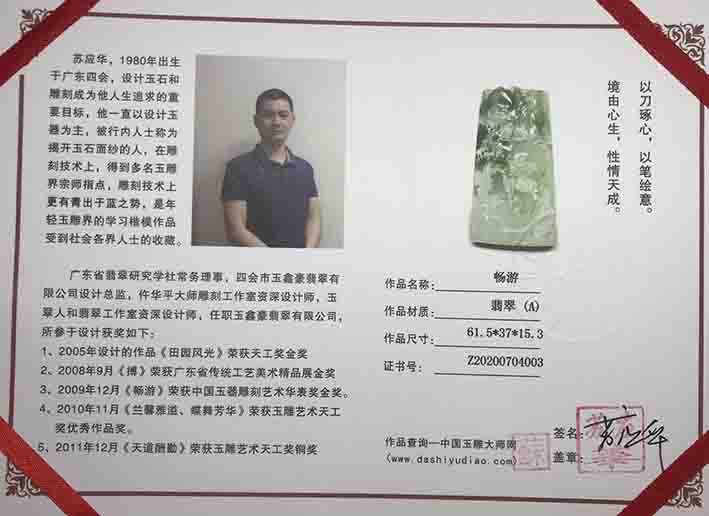 苏应华，1980年出生
于广东四会，设计玉石和
雕刻成为他人生追求的重
要目标，他一直以设计玉
器为主，被行内人士称为
揭开玉石面纱的人，在雕
刻技术上，得到多名玉雕
界宗师指点，雕刻技术上
更有青出于蓝之势，是年
轻玉雕界的学习楷模作品
受到社会各界人士的收藏。
广东省翡翠研究学社常务理事，四会市玉鑫豪翡翠有
限公司设计总监，仵华平大师雕刻工作室资深设计师，玉
翠人和翡翠工作室资深设计师，任职玉鑫豪翡翠有限公司，
所参于设计获奖如下：
1、2005年设计的作品《田园风光》荣获天工奖金奖
2、2008年9月《搏》荣获广东省传统工艺美术精品展金奖
3、2009年12月《畅游》荣获中国玉器雕刻艺术华表奖金奖。
4、2010年11月《兰馨雅溢、蝶舞芳华》荣获玉雕艺术天工
奖优秀作品奖。
5、2011年12月《天道酬勤》荣获玉雕艺术天工奖铜奖
以刀琢心，以笔绘意。
境由心生，性情天成。
作品名称：畅游
作品材质：翡翠（A）
作品尺寸：61.5*37*15.3
证书号：Z20200704003
作品查询—中国玉雕大师网
(www.dashiyudiao.com)
签名：苏应华
盖章：